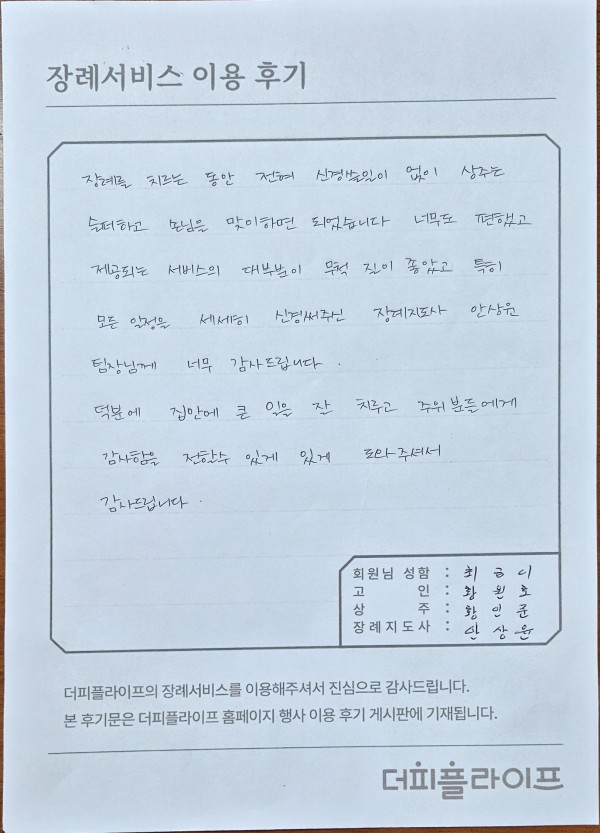 장례서비스 이용 후기
장례를 치르는 동안 전혀 신경쓸일이 없이 상주는
슬퍼하고 손님을 맞이하면 되었습니다 너무도 편했고
제공되는 서비스의 대부분이 무척 질이 좋았고 특히
모든 일정을 세세히 신경써주신 장례지도사 안상윤
팀장님께 너무 감사드립니다.
덕분에 집안에 큰 일을 잘 치루고 주위분들에게
감사함을 전할수 있게 있게 도와주셔서
감사드립니다.
회원님 성함 : 최금
고 인 : 황원호
상 주 : 황인준
장례지도사 : 안상윤
더피플라이프의 장례서비스를 이용해주셔서 진심으로 감사드립니다.
본 후기문은 더피플라이프 홈페이지 행사 이용 후기 게시판에 기재됩니다.
더피플라이프